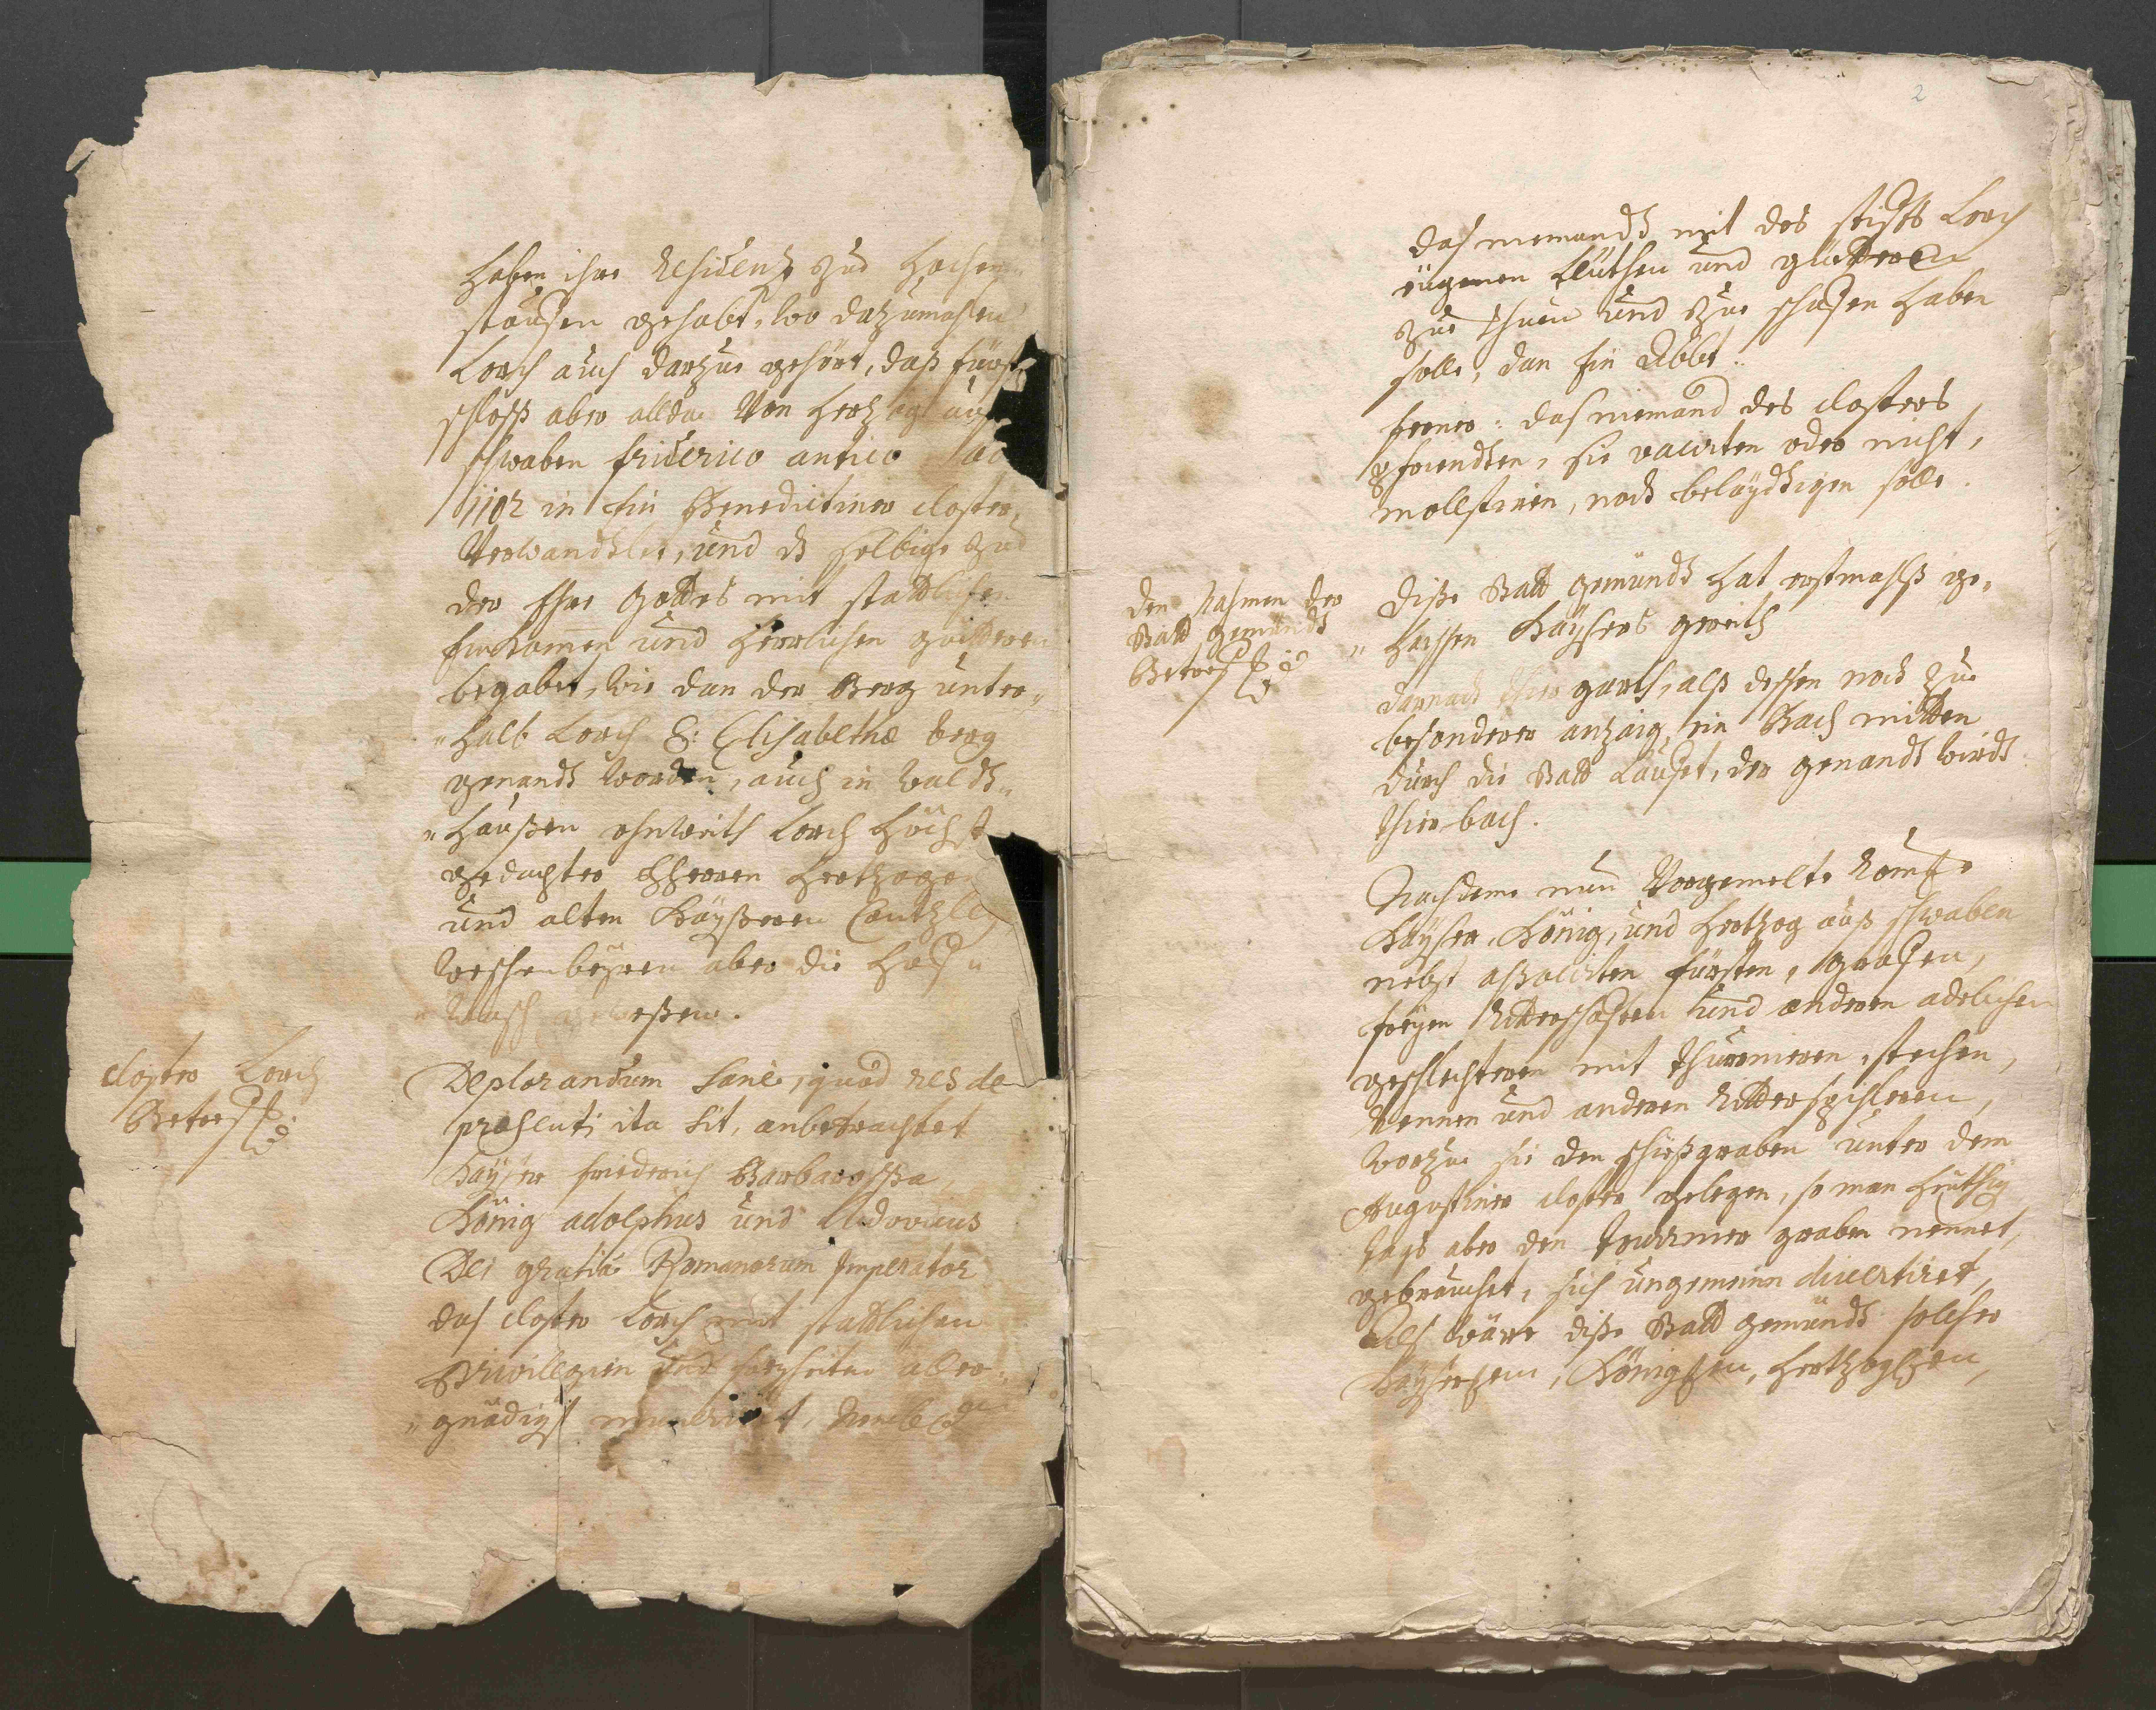 haben ihre Residentz zue Hochen„
staufen gehabt, wo dazumahlen
Lorch auch darzue gehört, daß fürst
schloß aber allda von Hertzog aus
schwaben friderico antico
1102 in ein Benedictiner closter
verwandtlet, und selbige zue
der Ehre Gottes mit stattlichen
einkomen und herrlichen güetteren
begabet, wie dan der Berg unter„
„halb Lorch S: Elisabethæ berg
genandt worden, auch in Waldt„
„haußen ohnweith Lorch höchst
gedachter hherren Hertzogen
und alten Kayßeren Cantzley
Weschenbeüren aber die hoff„
„Wasch gewesßen.
closter Lorch
Betreff:
Deplorandum sane, quod res de
præsenti ita sit, anbetrachtet
Kayser friederich Barbarossa,
König adolphus und Ludovicus
Dei gratiâ Romanorum Imperator
das closter Lorch mit stattlichen
Privilegien und freyheiten aller„
„gnädigst
2
das niemandt mit des stiffts Lorch
eügenen Leüthen und güetteren
zue thuen und zue schafen haben
solle, dan ein Abbt.
ferner: das niemand des closters
pfruendten, sie vacirten oder nicht,
mollstiren, noch beleydtigen solle.
den Nahmen der
Statt gemündt
Betreff:
Diße Statt gemündt hat erstmahlß ge„
„heissen Kaysers greith
darnach thier garth, alß dessen noch zue
besonderer anzaig, ein Bach mitten
durch die Statt Laufet, der genandt wirdt
thierbach.
Nachdeme nun vorgemelte Römische
Kayser, König, und Hertzog auß schwaben
nebst assocürten fürsten, grafen,
freyen Ritterschafften und anderen adelichen
geschlechteren mit thurnieren, stechen,
Rennen und anderen Ritterspihleren,
worzue sie den schießgraben unter dem
Augustiner closter gelegen, so man heüthig
tags aber den graben nennet,
gebrauchet, sich ungemein divertiret,
Als ware diße Statt gemündt solcher
Kayserlichen, Königlichen, Hertzoglichen,